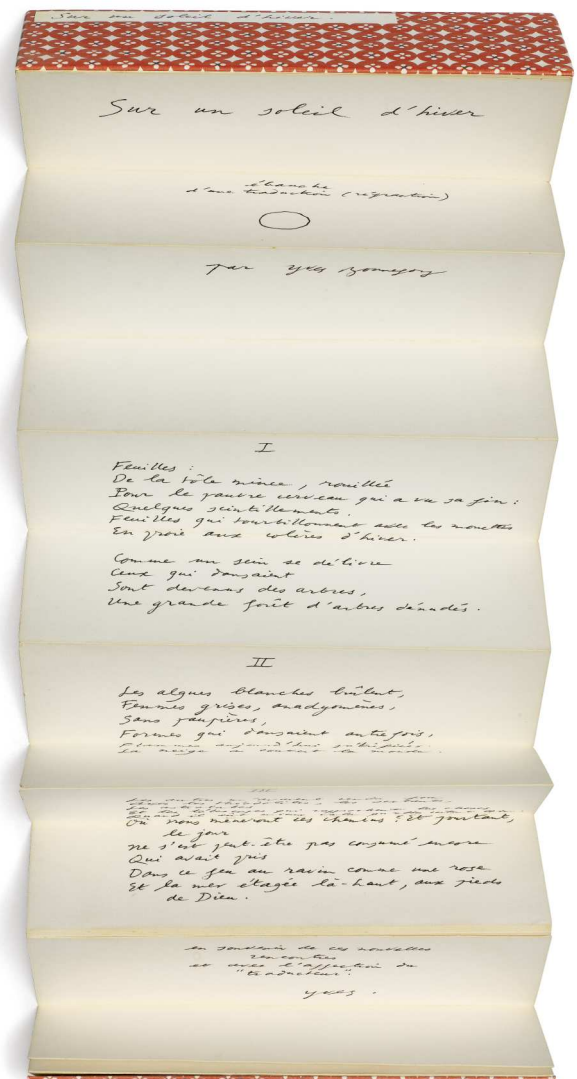 Sur un soleil d'hiver.
Sur un soleil d'hiver
ébauche
d'une traduction (réfraction)
par Yves Bonnefoy
I
Feuilles :
De la tôle mince, rouillée
Pour le pauvre cerveau qui a vu sa fin :
Quelques scintillements.
Feuilles qui tourbillonnent avec les mouettes
En proie aux colères d'hiver.
Comme un sein se délivre
Ceux qui dansaient
Sont devenus des arbres,
Une grande forêt d'arbres dénudés.
II
Les algues blanches brûlent,
Femmes grises, anadyomènes,
Sans paupières,
Formes qui dansaient autrefois,
Flammes aujourd'hui pétrifiées.
La neige a couvert le monde.
III
Où nous mèneront ces chemins ? Et pourtant,
le jour
ne s'est peut-être pas consumé encore
Qui avait pris
Dans ce feu au ravin comme une rose
Et la mer étagée là-haut, aux pieds
de Dieu.
en souvenir de ces nouvelles
rencontres
et avec l'affection du
"traducteur".
Yves.